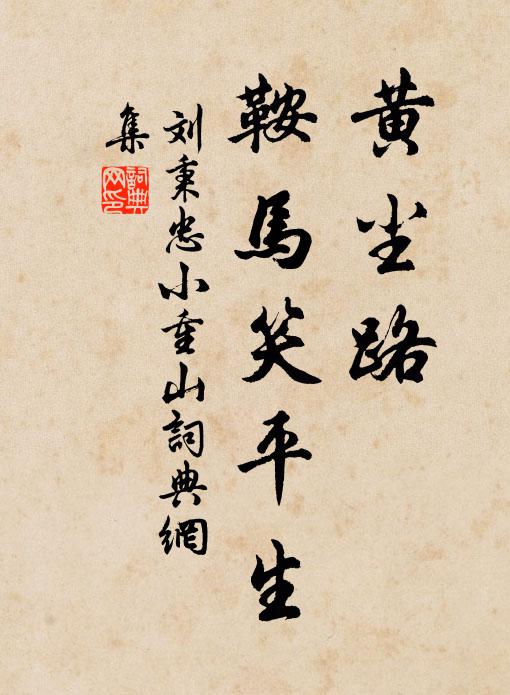 黄尘路
鞍馬笑平生
刘秉忠小重山詞典網
集
詞典
网印